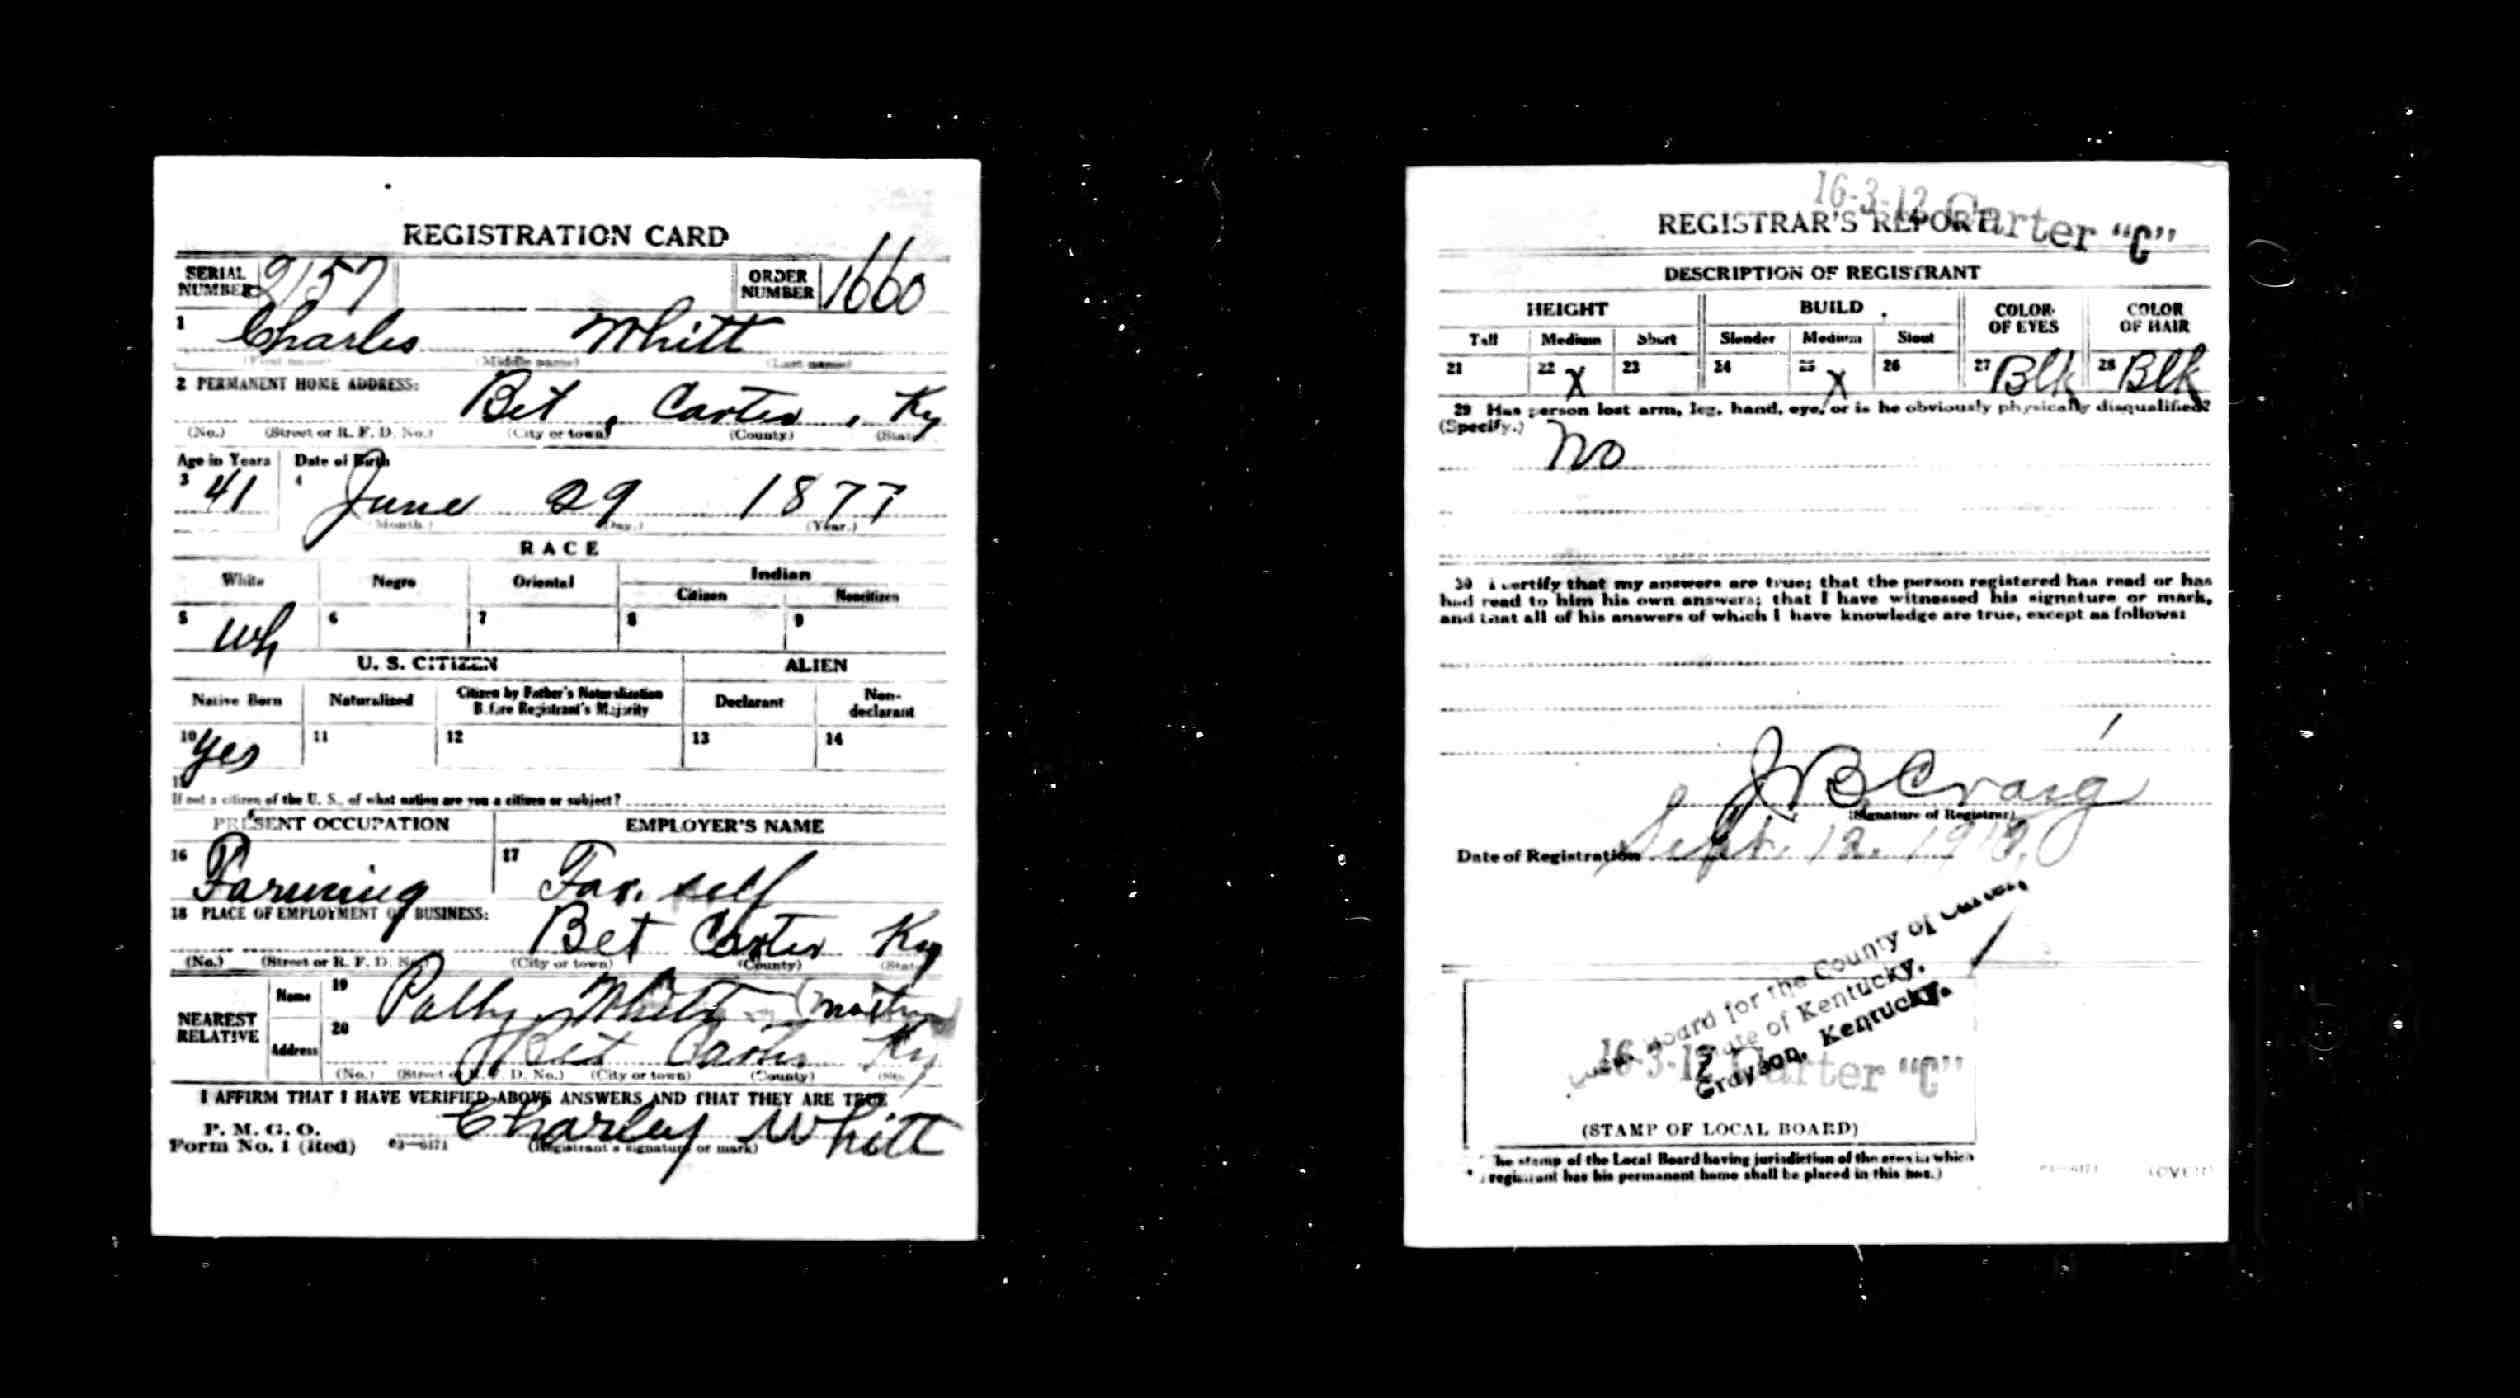 REGISTRATION CARD
SERIAL NUMBER 2157 ORDER NUMBER 1660
1 Charles Whitt
(First name) (Middle name) (Last name)
2 PERMANENT HOME ADDRESS:
Bet, Carter, Ky
(No.) (Street or R. F. D. No.) (City or town) (County) (State)
Age in Years Date of Birth
3 41 4 June 29 1877
(Month.) (Day.) (Year.)
RACE
White Negro Oriental Indian
Citizen Noncitizen
5 Wh 6 7 8 9
U. S. CITIZEN ALIEN
Native Born Naturalized Citizen by Father's Naturalization Before Registrant's Majority Declarant Non-declarant
10 Yes 11 12 13 14
15
If not a citizen of the U. S., of what nation are you a citizen or subject?
PRESENT OCCUPATION EMPLOYER'S NAME
16 Farming 17 For self
18 PLACE OF EMPLOYMENT OR BUSINESS:
Bet Carter Ky
(No.) (Street or R. F. D. No.) (City or town) (County) (State)
NEAREST RELATIVE
Name 19 Whitt
Address 20 Bet Carter Ky
(No.) (Street or R. F. D. No.) (City or town) (County)
I AFFIRM THAT I HAVE VERIFIED ABOVE ANSWERS AND THAT THEY ARE TRUE
P. M. G. O.
Form No. 1 (Red) 03—6171 Charley Whitt
(Registrant's signature or mark)
16-3-12 Carter "C"
REGISTRAR'S REPORT
DESCRIPTION OF REGISTRANT
HEIGHT BUILD COLOR OF EYES COLOR OF HAIR
Tall Medium Short Slender Medium Stout
21 22 X 23 24 25 X 26 27 Blk 28 Blk
29 Has person lost arm, leg, hand, eye, or is he obviously physically disqualified?
(Specify.) No
30 I certify that my answers are true; that the person registered has read or has
had read to him his own answers; that I have witnessed his signature or mark,
and that all of his answers of which I have knowledge are true, except as follows:
J B Craig
(Signature of Registrar)
Date of Registration Sept. 12. 1918.
Local Board for the County of Carter
State of Kentucky.
Grayson, Kentucky.
16-3-12 Carter "C"
(STAMP OF LOCAL BOARD)
The stamp of the Local Board having jurisdiction of the area in which
registrant has his permanent home shall be placed in this box.)
03—6171 (OVER)